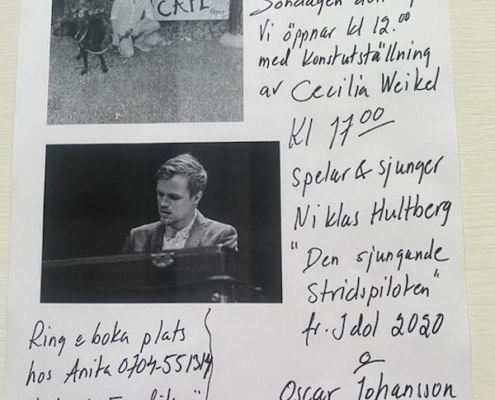 CAFE
Söndagen den
Vi öppnar kl 12.00
med konstutställning
av Cecilia Weikel
Kl 17.00
spelar & sjunger
Niklas Hultberg
"Den sjungande
Stridspiloten"
fr. Idol 2020
&
Oscar Johansson
Ring & boka plats
hos Anita